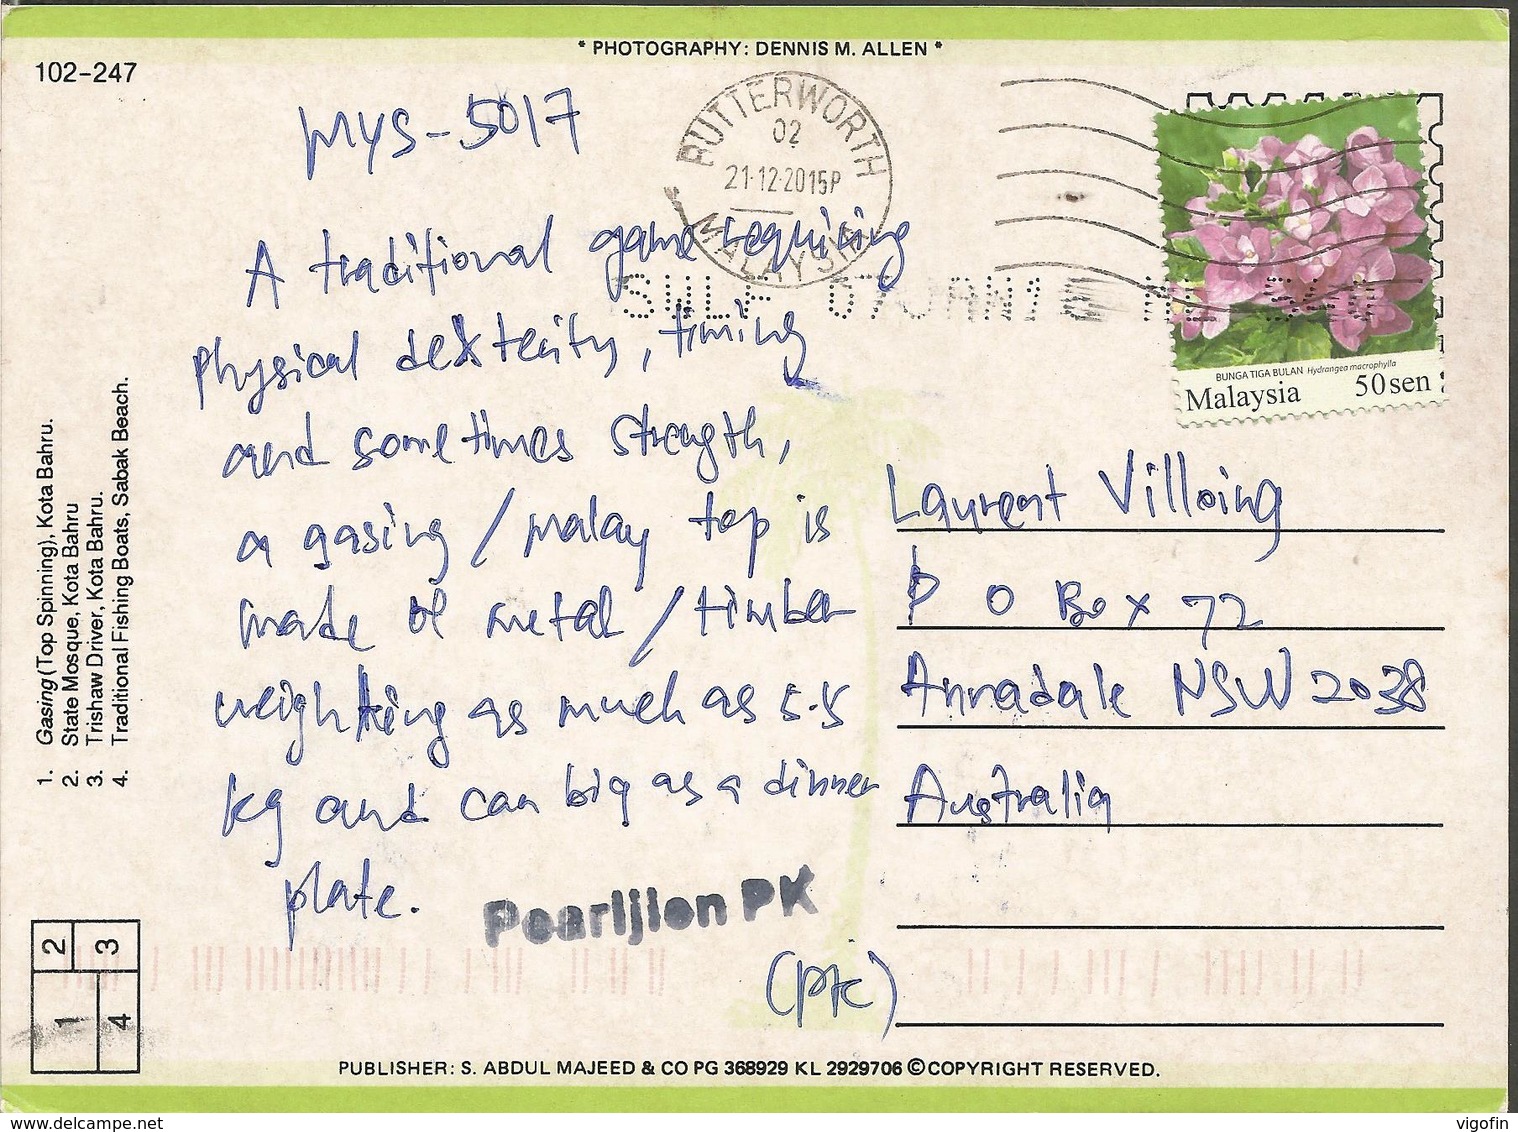 * PHOTOGRAPHY: DENNIS M. ALLEN *
102-247
MYS-5017
BUTTERWORTH
02
21-12-2015P
MALAYSIA
BUNGA TIGA BULAN Hydrangea macrophylla
Malaysia 50sen
A traditional game requiring
physical dexterity, timing
and sometimes strength,
a gasing / malay top is
made of metal / timber
weighting as much as 5.5
kg and can big as a dinner
plate.
Pearljlon PK
(PK)
Laurent Villoing
P O Box 72
Annadale NSW 2038
Australia
1. Gasing (Top Spinning), Kota Bahru.
2. State Mosque, Kota Bahru
3. Trishaw Driver, Kota Bahru.
4. Traditional Fishing Boats, Sabak Beach.
2 3
1 4
PUBLISHER: S. ABDUL MAJEED & CO PG 368929 KL 2929706 © COPYRIGHT RESERVED.
www.delcampe.net
vigofin